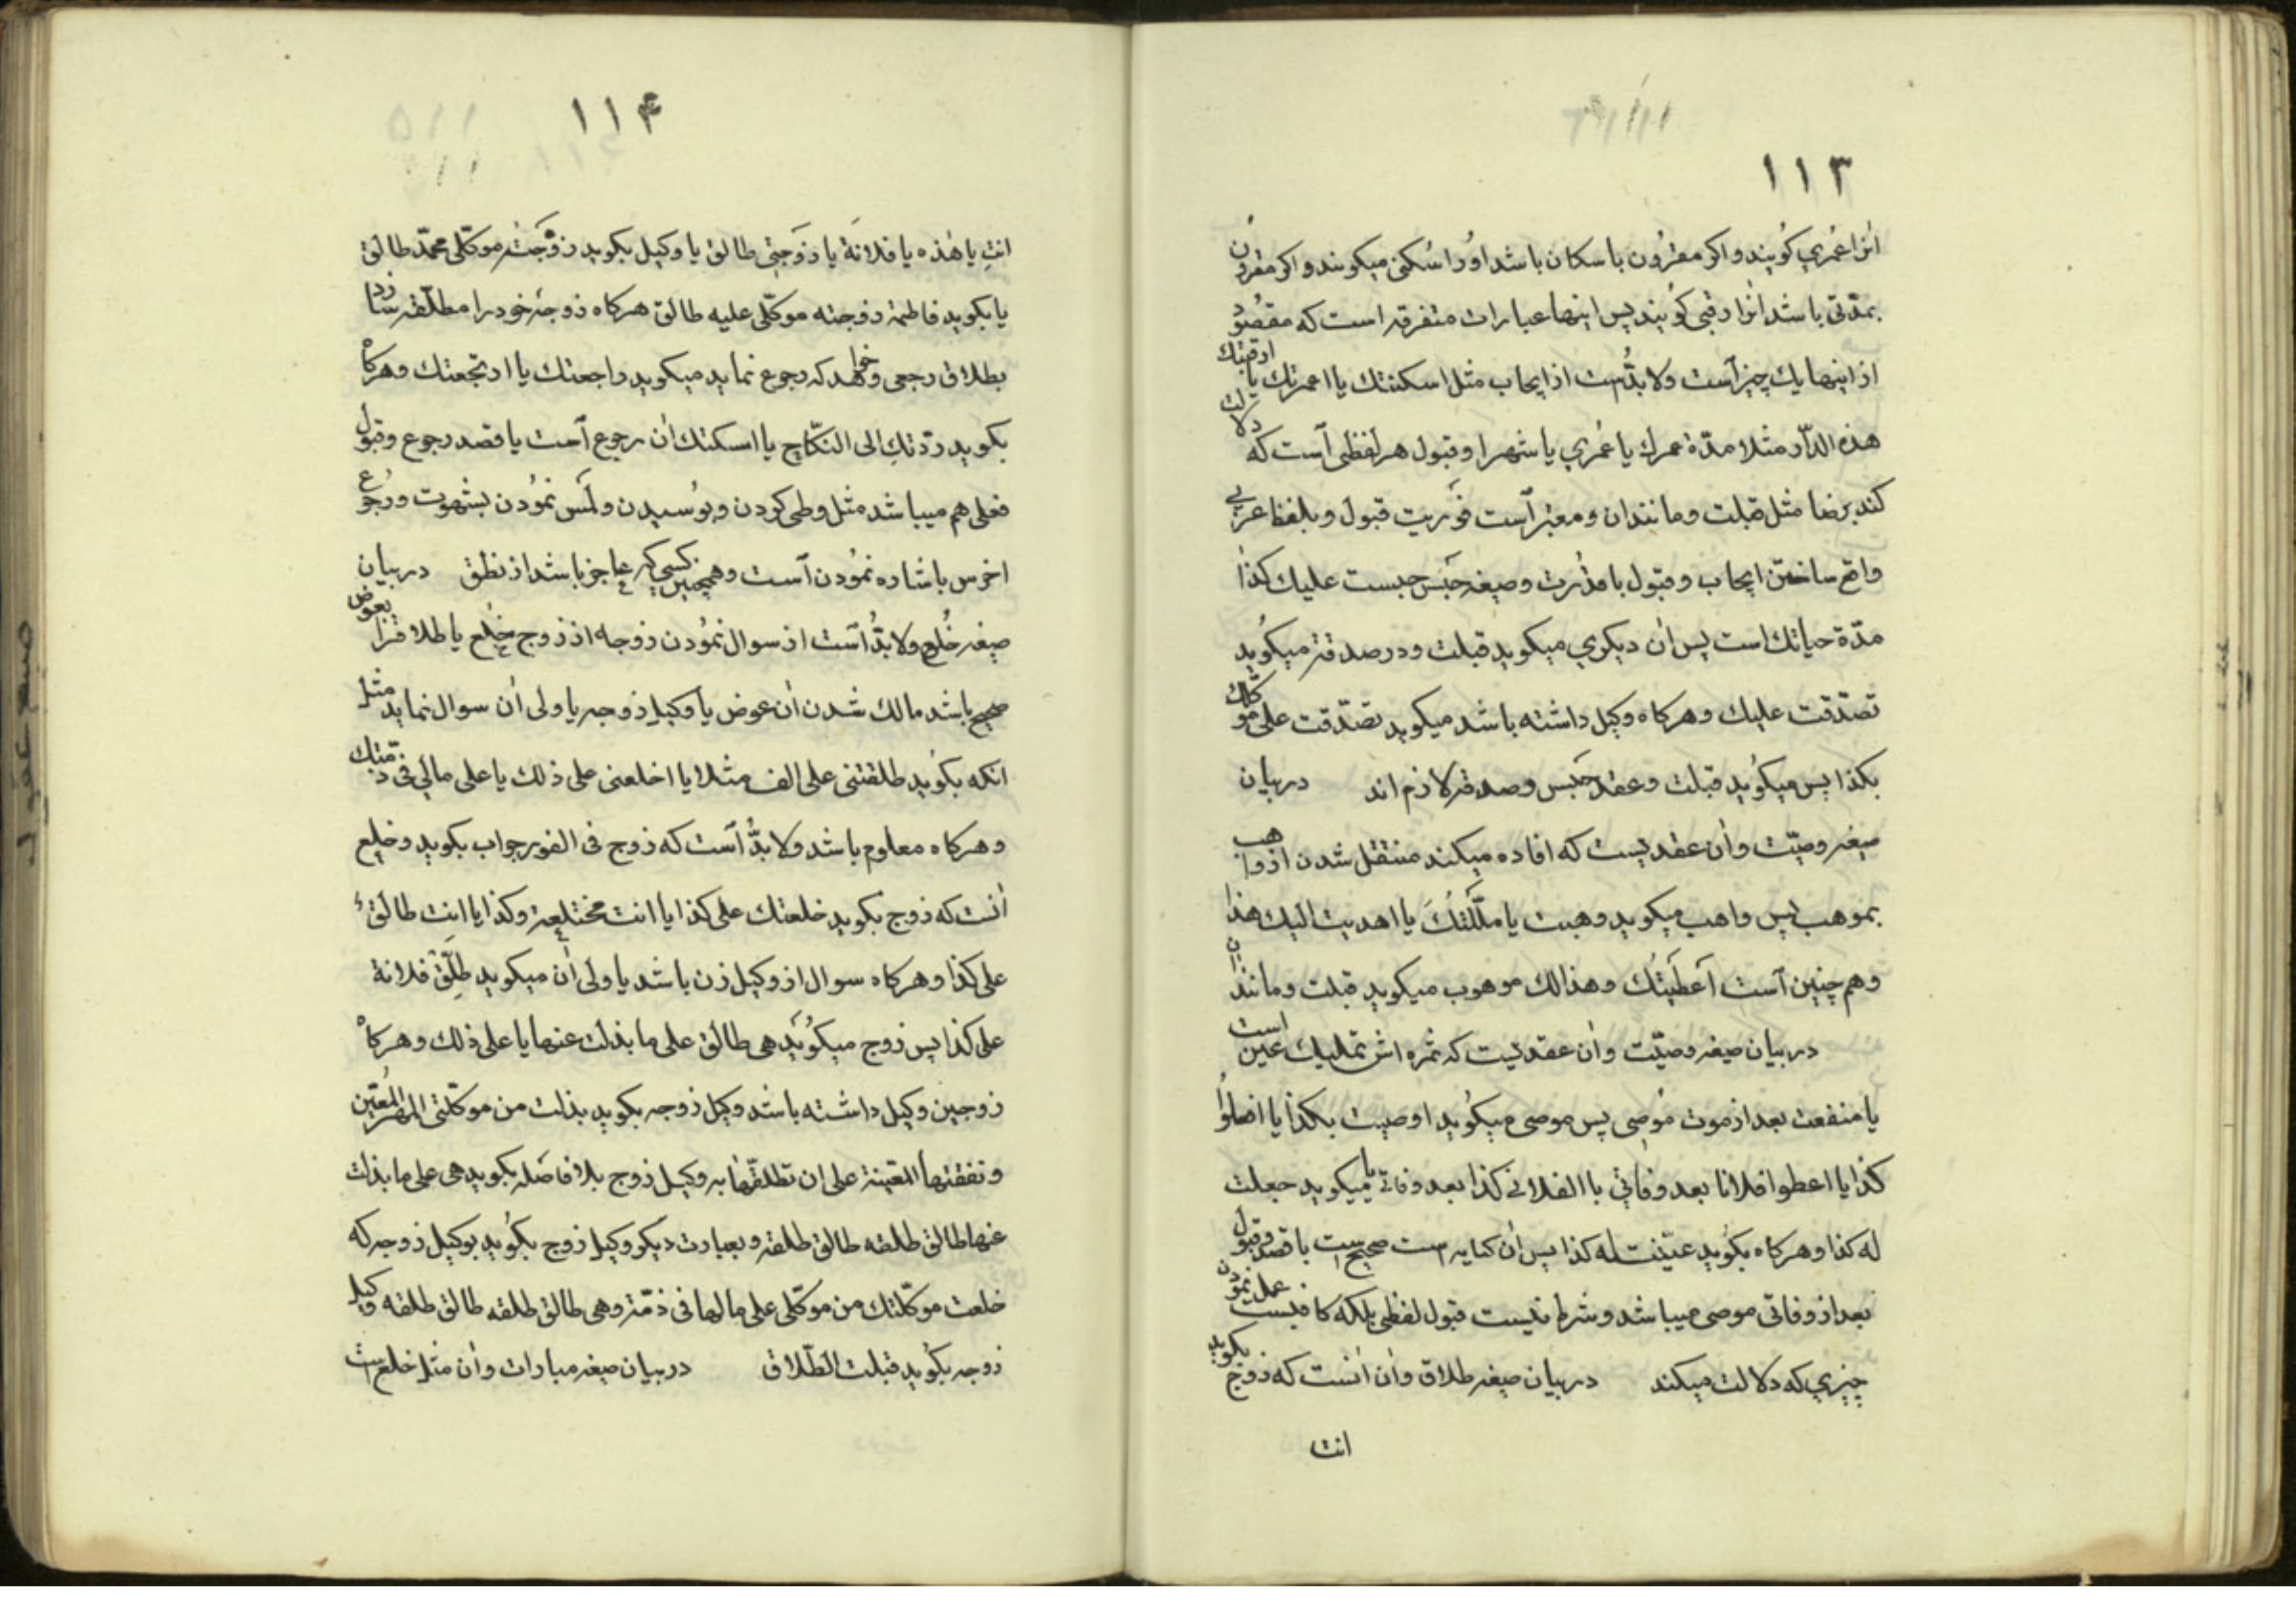 ۱۱۳
انرا عُمري كُويند و اكر مقرُون باسكان باشد اورا سُكنی ميكويند و اكر مقرون
بمدّتی باشد انرا رقبی كُويند پس اينها عبارات متفرقه است كه مقصُود
از اينها يك چيز آست و لا بدُّ است از ايجاب مثل اسكنتك يا اعمرتك يا ارقبتك
هذه الدّار مثلا مدّة عمرك يا عُمري يا شهرا و قبول هر لفظی آست كه دلالت
كند برضا مثل قبلت و مانند ان و معتبر آست فَوريت قبول و بلفظ عربي
واقع ساختن ايجاب و قبول با قدُرت و صيغه حَبَس حبست عليك كذا
مدّة حياتك است پس اٰن ديكري ميكويد قبلت و در صدقه ميكُويد
تصدّقت عليك و هركاه وكيل داشته باشد ميكويد تصَدّقت علی موكلك
بكذا پس ميكُويد قبلت و عقد حَبَس و صدقه لازم اند در بيان
صيغه وصيّت و اٰن عقديست كه افاده ميكند منتقل شدن از واهب
بموهب پس واهب ميكويد وهبت يا ملّكتُكَ يا اهديت اليك هذا
و هم چنين آست آعطَيتُك و هذا لك موهوب ميكويد قبلت و مانند ان
در بيان صيغه وصيّت و اٰن عقديست كه ثمره اش تمليك عين است
يا منفعت بعد از موت مُوصِی پس موصی ميكُويد اوصيت بكذا يا افعلوُا
كذا يا اعطوا فلانا بعد وفاتي يا الفلانی كذا بعد وفاتی يا ميكويد جعلت
له كذا و هركاه بكُويد عيّنت له كذا پس اٰن كنايه است صحيح است با قصد و قبول
بعد از وفاتی موصی ميباشد و شرط نيست قبول لفظی بلكه كافيست عمل نمودن
چيزي كه دلالت ميكند در بيان صيغه طلاق و اٰن اٰنست كه زوج بكويد
انت
۱۱۴
انتِ يا هٰذه يا فلانَة يا زوَجتی طالق يا وكيل بكويد زوَّجَتُ موكّلی محمّد طالَق
يا بكويد فاطمة زوجته موكّلی عليه طالق هركاه زوجهٔ خود را مطلّقه سازد
بطلاق رجعی و خواهد كه رجوع نمايد ميكويد راجعتك يا ارتجعتك و هركاه
بكويد ردّدتكِ الی النكّاح يا اسكتك اٰن رجوع آست يا قصد رجوع و قبول
فعلی هم ميباشد مثل وطی كردن و بوُسيدن و لَمس نمُودن بشهوت و رُجوع
اخرس باشاره نمُودن آست و همچنين كسی كه عاجز باشد از نطق در بيان
صيغه خُلع و لا بدُّ آست از سوال نمُودن زوجه از زوج خلع يا طلاق را بعوض
صحيح باشد مالك شدن اٰن عوض يا وكيل زوجه يا ولی اٰن سوال نمايد مثل
انكه بكُويد طلقتنی علی الف مثلا يا اخلعنی علی ذلك يا علی مالي فی ذمّتك
و هركاه معلوم باشد و لا بدُّ آست كه زوج فی الفور جواب بكويد و خلع
اٰنست كه زوج بكويد خلعتك علی كذا يا انت مختلعة و كذا يا انتِ طالق
علی كذا و هركاه سوال از وكيل زن باشد يا ولی اٰن ميكويد طلِّقْ فلانة
علی كذا پس زوج ميكُويَد هی طالق علی ما بذلت عنها يا علی ذلك و هركاه
زوجين وكيل داشته باشد وكيل زوجه بكويد بذلت من موكّلتی المَهر المُعيّن
و نفقتها المعيّنة علی ان تطلقّها به وكيل زوج بلا فاصَله بكويد هی علی ما بذلت
عنها طالق طلقه طالق طلقه و بعبارت ديكر وكيل زوج بكُويد بوكيل زوجه كه
خلعت موكّلتك من موكّلی علی ما لها فی ذمّته و هی طالق طلقه طالق طلقه وكيل
زوجه بكُويد قبلت الطّلاق در بيان صيغه مبارات و اٰن مثل خلع است